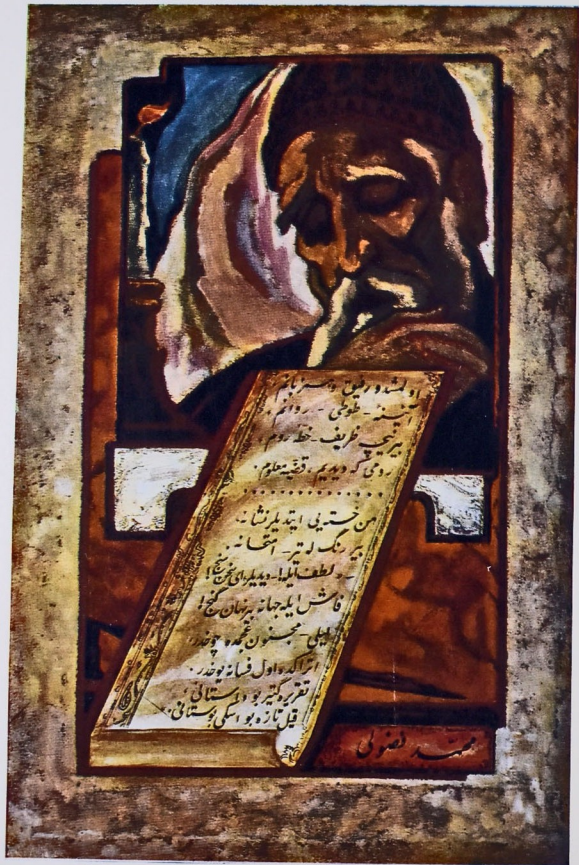 اولمشدو رفیق و همزبانم،
آیینه‌ - طوطی - روانم،
بیر نیچه ظریف - خطه روم،
رومی که دیدیم، قضیه معلوم.
..............
من خسته‌یی ایتدیلر نشانه،
بیر رنگ له تیر - امتحانه.
لطف ایله! - دیدیلر ای سخن سنج!
فاش ایله جهانه بیر نهان گنج!
لیلی - مجنون عجمده چوخدر،
اتراکده اول فسانه یوخدر.
تقریره گتیر بو داستانی،
قیل تازه بو اسکی بوستانی.
محمد فضولی